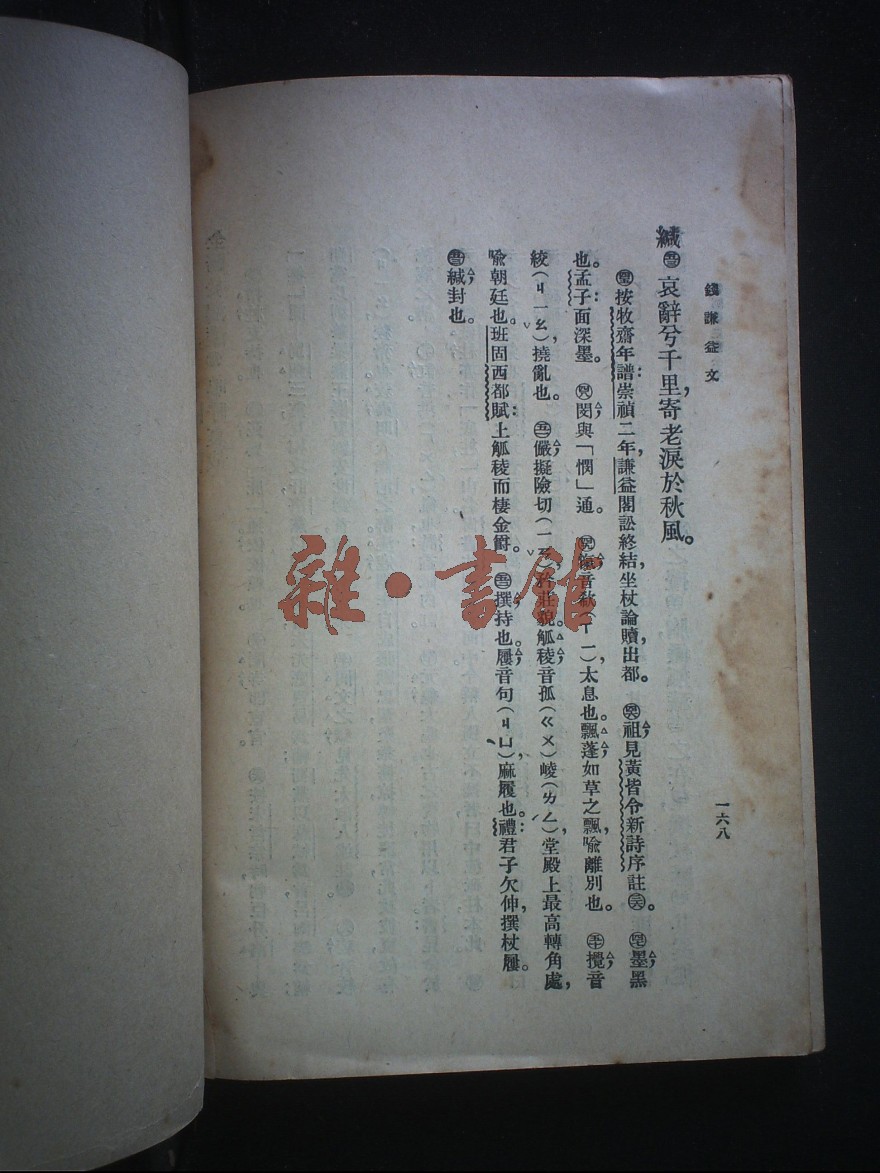 錢謙益文
一六八
緘哀辭兮千里,寄老淚於秋風。
按牧齋年譜:崇禎二年,謙益閣訟終結,坐杖論贖,出都。 祖,見黃皆令新詩序註。 墨,黑
也。孟子:面深墨。 閔,與「憫」通。 音欷(ㄒㄧ)太息也。飄蓬,如草之飄,喩離別也。 攪,音
絞(ㄐㄧㄠ),撓亂也。 儼,擬險切(ㄧㄢ)矜莊貌。觚稜,音孤(ㄍㄨ)崚(ㄌㄥ)堂殿上最高轉角處,
喩朝廷也。班固西都賦:上觚稜而棲金爵。 撰,持也。屨,音句(ㄐㄩ),麻履也。禮:君子欠伸,撰杖屨。
緘,封也。
雜·書館